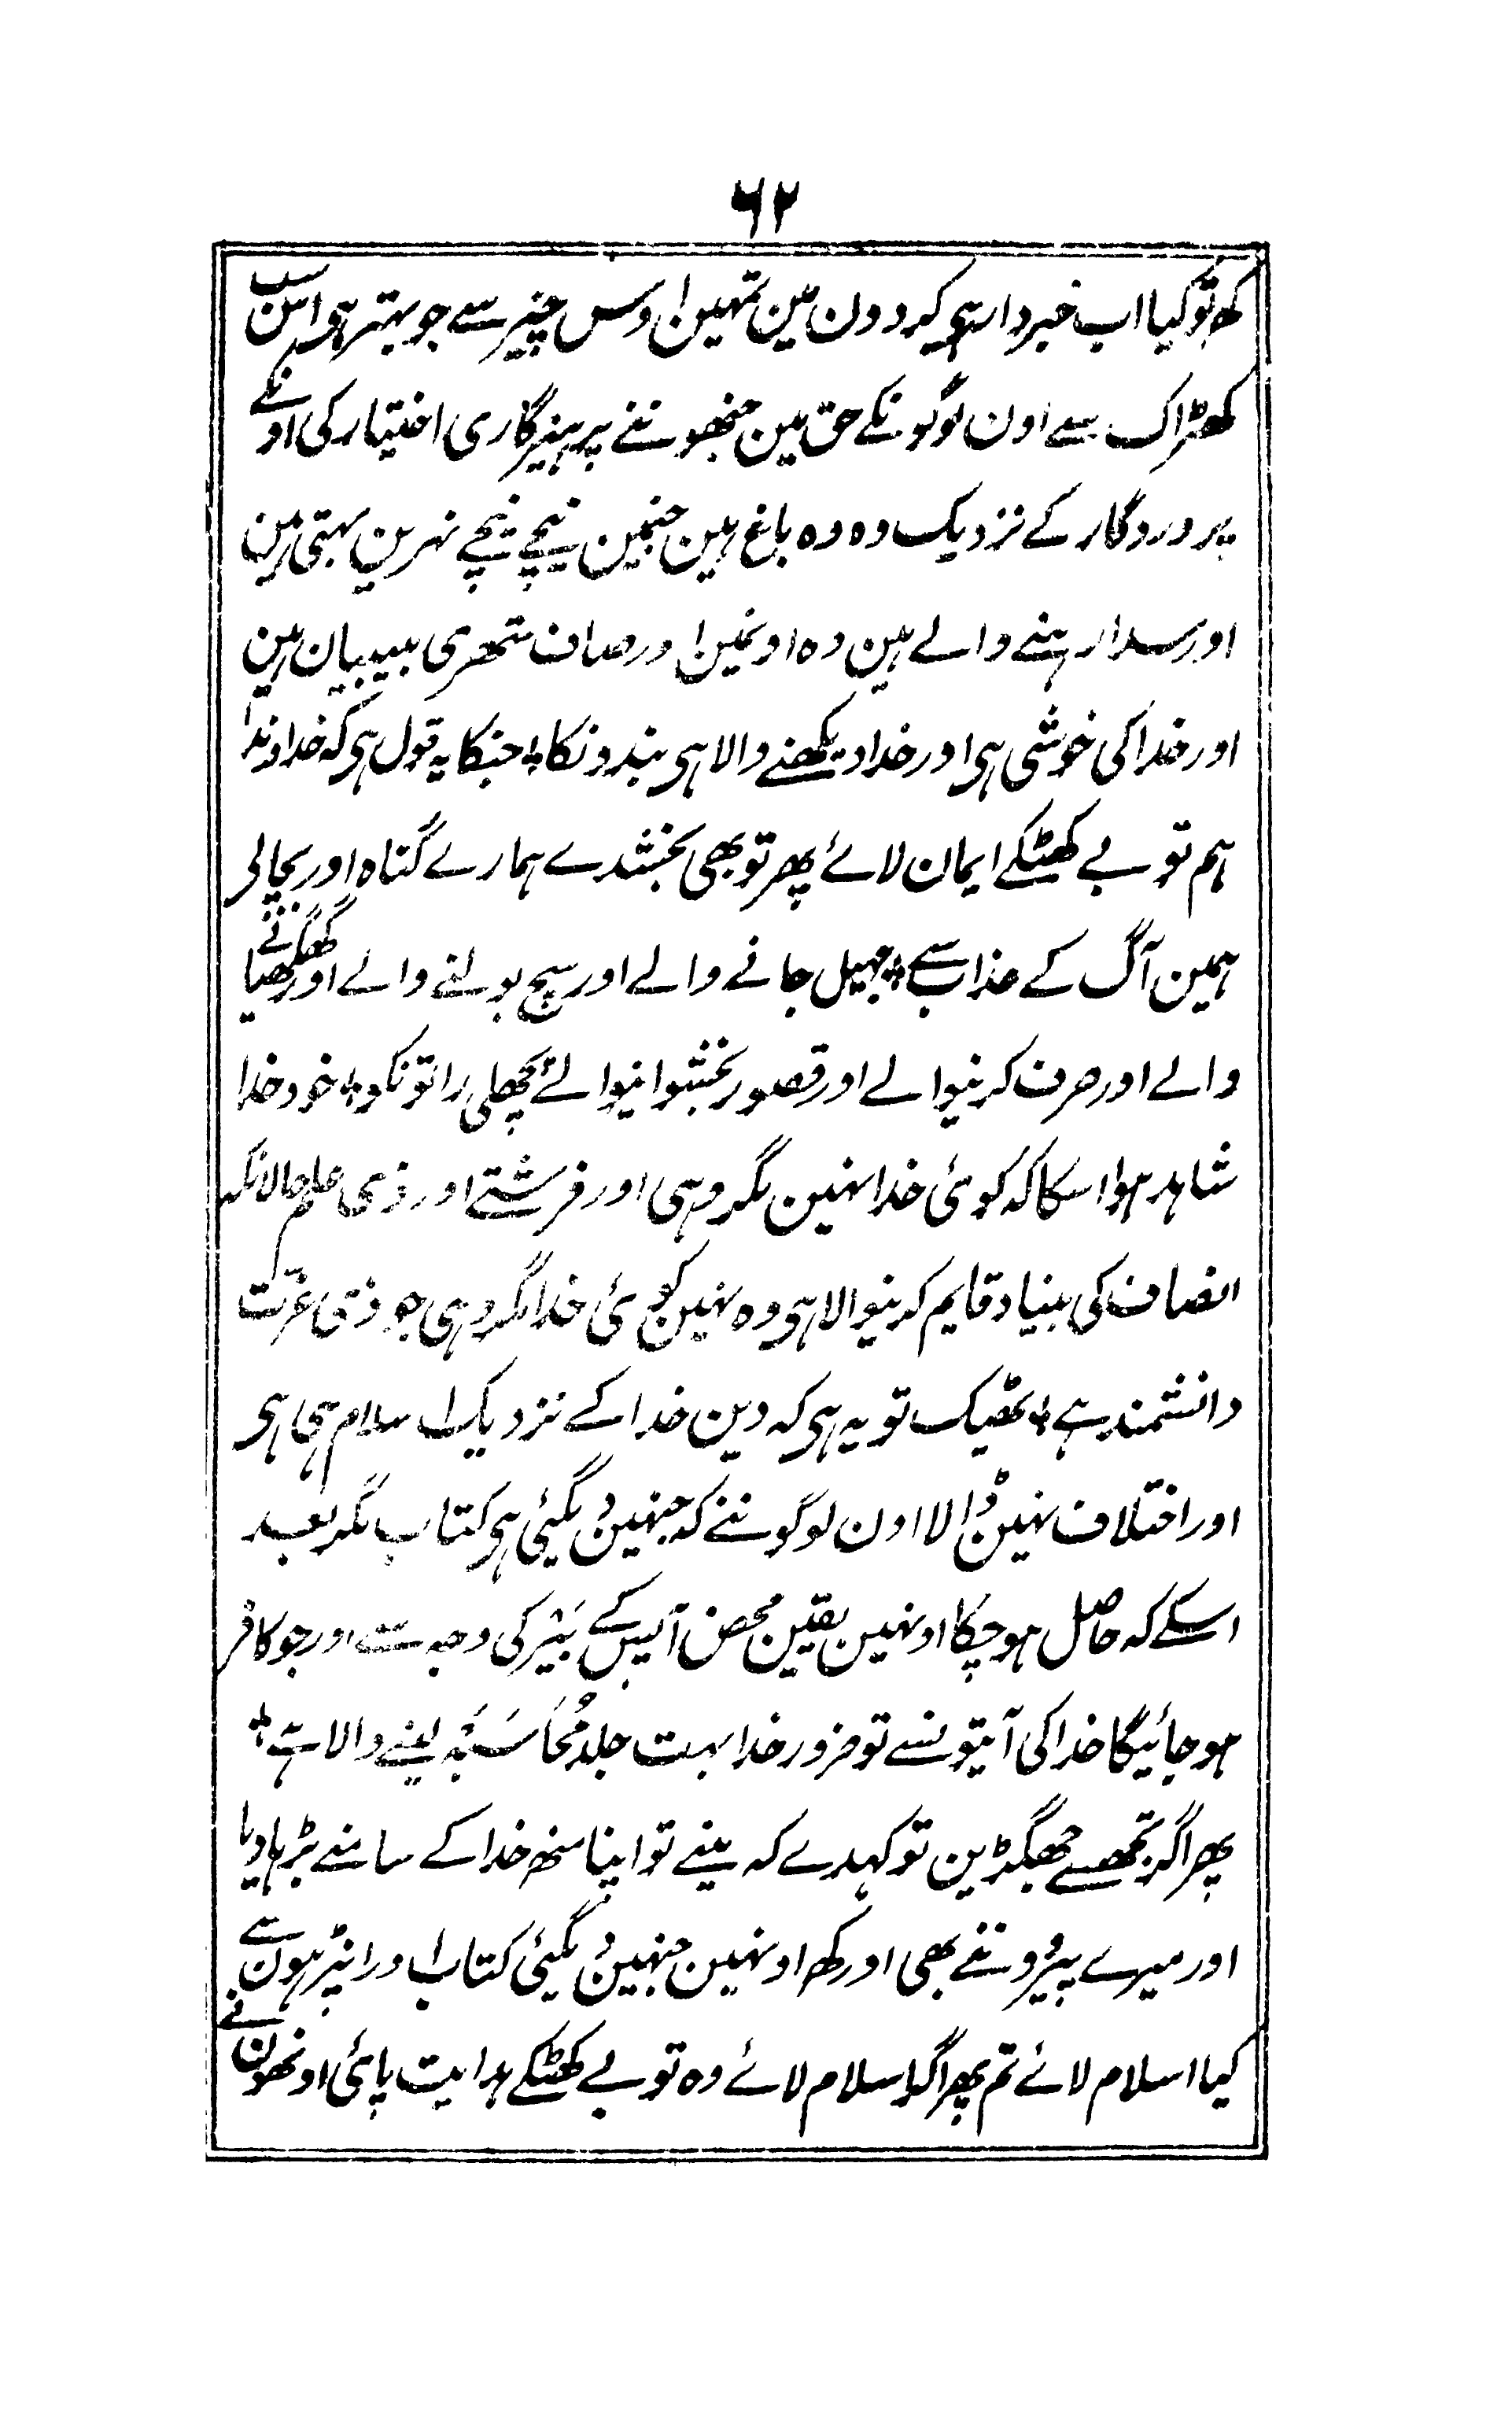 ۶۲
کہ تو کیا اب خبردار ہی کردون مین تمہین اوس چیز سے جو بہتر ہی اس سب
کھڑاک سے اون لوگونکے حق مین جنھوننے پرہیزگاری اختیار کی اونکے
پروردگار کے نزدیک وہ وہ باغ ہین جنمین نیچے نیچے نہرین بہتی ہین
اور سدا رہنے والے ہین وہ اونمین اور صاف ستھری بیبیان ہین
اور خدا کی خوشی ہی اور خدا دیکھنے والا ہی بندونکا ؞ جنکا یہ قول ہی کہ خداوندا
ہم تو بے کھٹکے ایمان لائے پھر تو بھی بخشدے ہمارے گناہ اور بچالی
ہمین آگ کے عذاب سے ؞ جہیل جانے والے اور سچ بولنے والے اور گھگھیانے
والے اور صرف کرنیوالے اور قصور بخشوانیوالے پچھلی راتونکو ؞ خود خدا
شاہد ہوا اسکا کہ کوئی خدا نہین مگر وہی اور فرشتے اور ذی علم حالانکہ
انصاف کی بنیاد قایم کرنیوالا ہی وہ نہین کوئی خدا مگر وہی جو ذی عزّت
دانشمند ہے ؞ ٹھیک تو یہ ہی کہ دین خدا کے نزدیک اسلام ہی ہی
اور اختلاف نہین ڈالا اون لوگوننے کہ جنہین دیگئی ہی کتاب مگر بعد
اسکے کہ حاصل ہوچکا اونہین یقین محض آپس کے بَیَر کی وجہ سے اور جو کافر
ہوجائیگا خدا کی آیتونسے تو ضرور خدا بہت جلد مُحَاسَبَہ لینے والا ہے ؞
پھر اگر تجھسے جھگڑین تو کہدے کہ مینے تو اپنا منھ خدا کے سامنے بڑہادیا
اور میرے پیرووننے بھی اور کہ اونہین جنہین دیگئی کتاب اور انپڑہون سے
کیا اسلام لائے تم پھر اگر اسلام لائے وہ تو بے کھٹکے ہدایت پائی اونھون نے